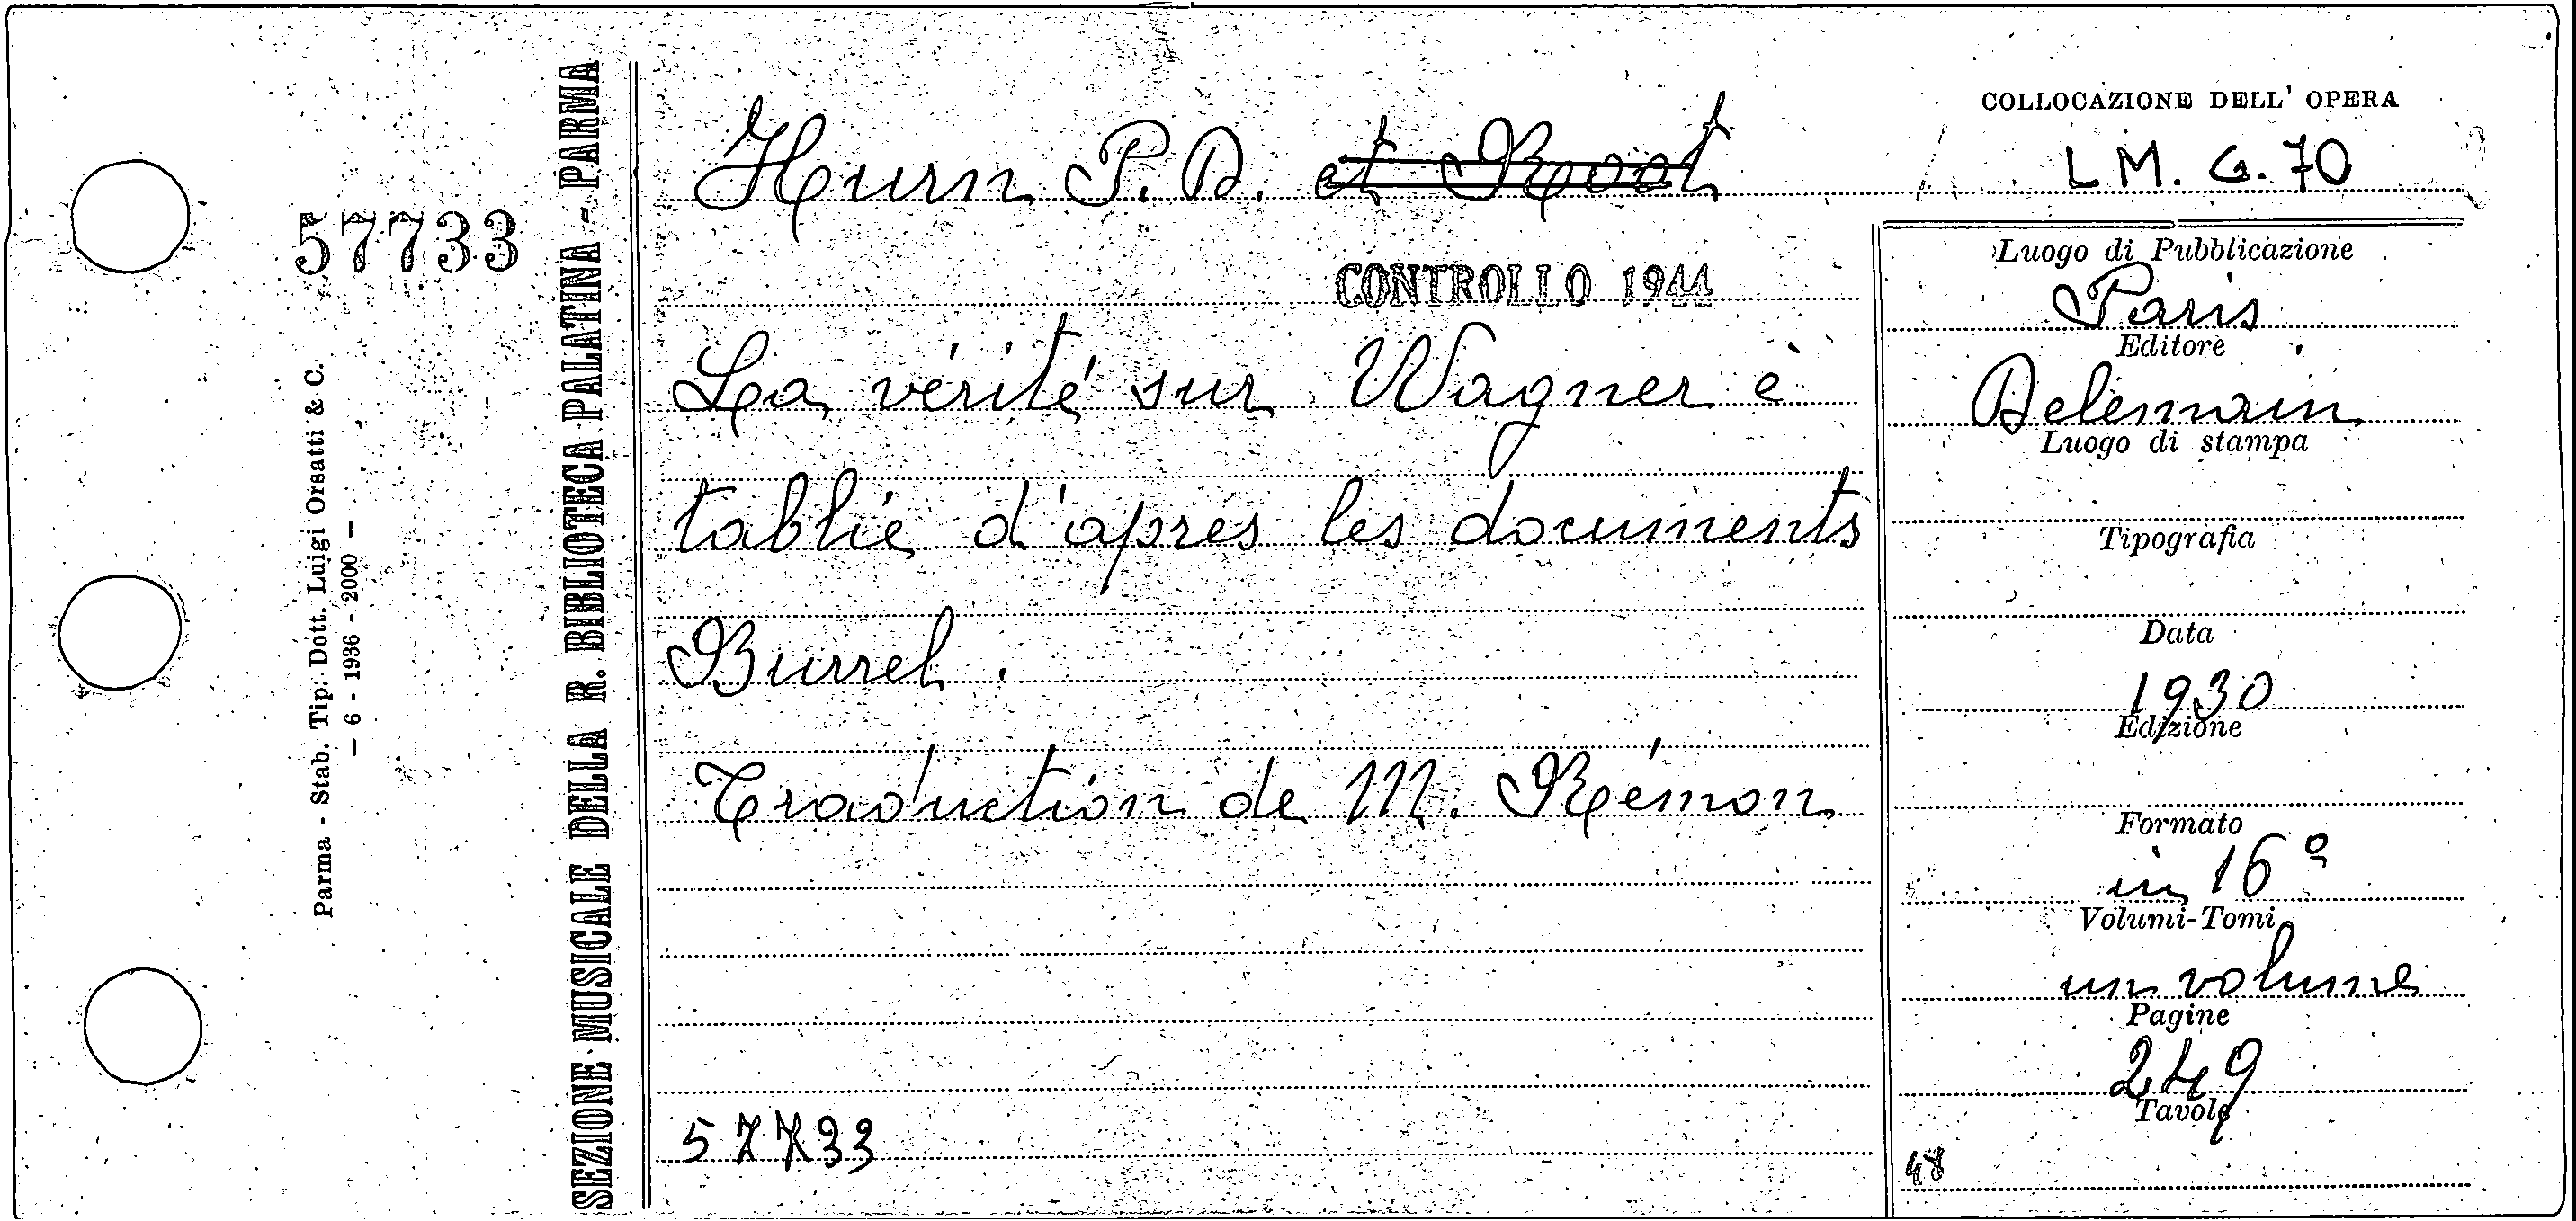 57733
Parma - Stab. Tip. Dott. Luigi Orsatti & C.
- 6 - 1936 - 2000 -
SEZIONE MUSICALE DELLA R. BIBLIOTECA PALATINA - PARMA
Hurn P. D. et Root
CONTROLLO 1944
La vérité sur Wagner è
tablie d'apres les documents
Burrel.
Traduction de M. Rémon
57733
COLLOCAZIONE DELL' OPERA
L M. G. 70
Luogo di Pubblicazione
Paris
Editore
Delemain
Luogo di stampa
Tipografia
Data
1930
Edizione
Formato
in 16º
Volumi-Tomi
un volume
Pagine
249
Tavole
48